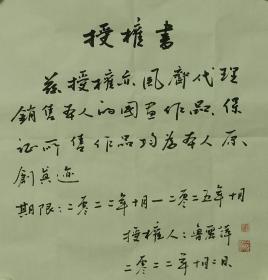 授權書
茲授權亦風齋代理
銷售本人的國畫作品。保
証所售作品均為本人原
創真迹
期限：二零二二年十月一二零二五年十月
授權人：魯
二零二二年十月二日